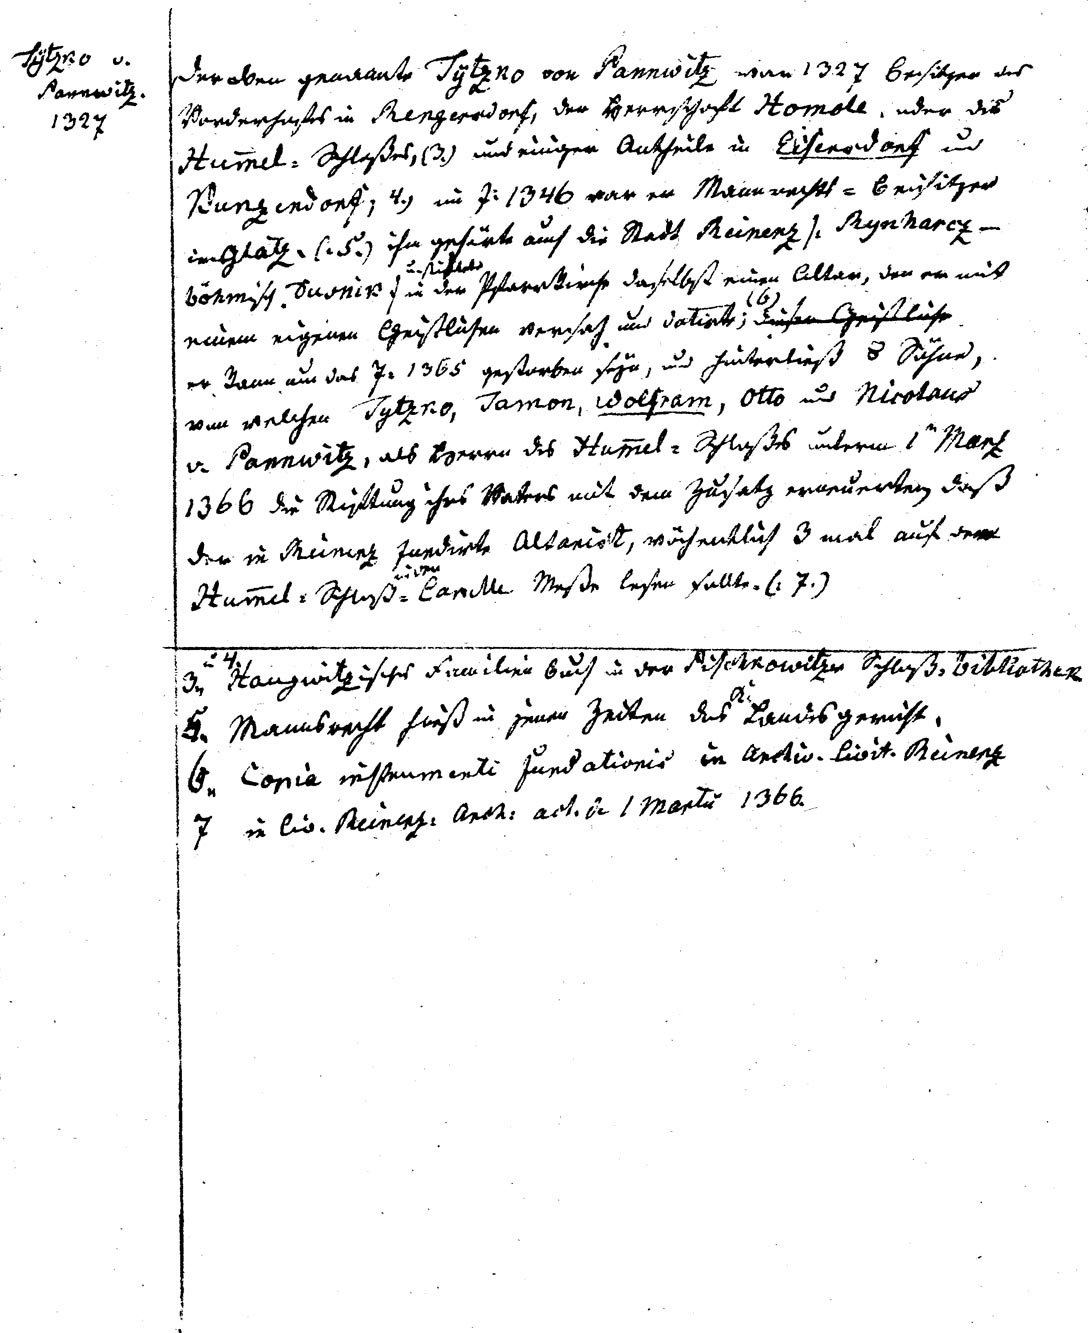 Tÿtzko v.
Pannwitz.
1327
Der oben genannte Tÿtzko von Pannwitz war 1327 Besitzer des
Vorderhofes in Rengersdorf, der Herrschaft Homole, oder des
Hum̅el-Schloßes, (3.) und einiger Antheile in Eisersdorf und
Kunzendorf; 4.) im J: 1346 war er Mannrechts-Beisitzer
in Glatz. (:5.) ihm gehörte auch die Stadt Reinerz /: Rynharcz –
böhmisch Dusnik / u. stiftete in der Pfarrkirche daselbst einen Altar, den er mit
einem eigenen Geistlichen versah und dotirte; (6) dieser Geistliche
er kann um das J: 1365 gestorben seÿn, und hinterließ 8 Söhne,
von welchen Tytzko, Jamon, Wolfram, Otto und Nicolaus
v. Pannwitz, als Herrn des Hum̅el-Schloßes unterm 1n Maerz
1366 die Stiftung ihres Vaters mit dem Zusatz erneuerten, daß
der in Reinerz fundirte Altarist, wöchentlich 3 mal auf dem
Hum̅el-Schloß- in der Capelle Messe lesen sollte. (:7.)
3. u 4. Haugwitzisches Familien Buch in der Pischkowitzer Schloß-Bibliothek
5. Mannsrecht hieß in jenen Zeiten das K. Landesgericht.
6. Copia instrumenti fundationis in Archiv. Civit. Reinerz
7 in Civ. Reinerz: Arch: act. d. 1 Martii 1366.